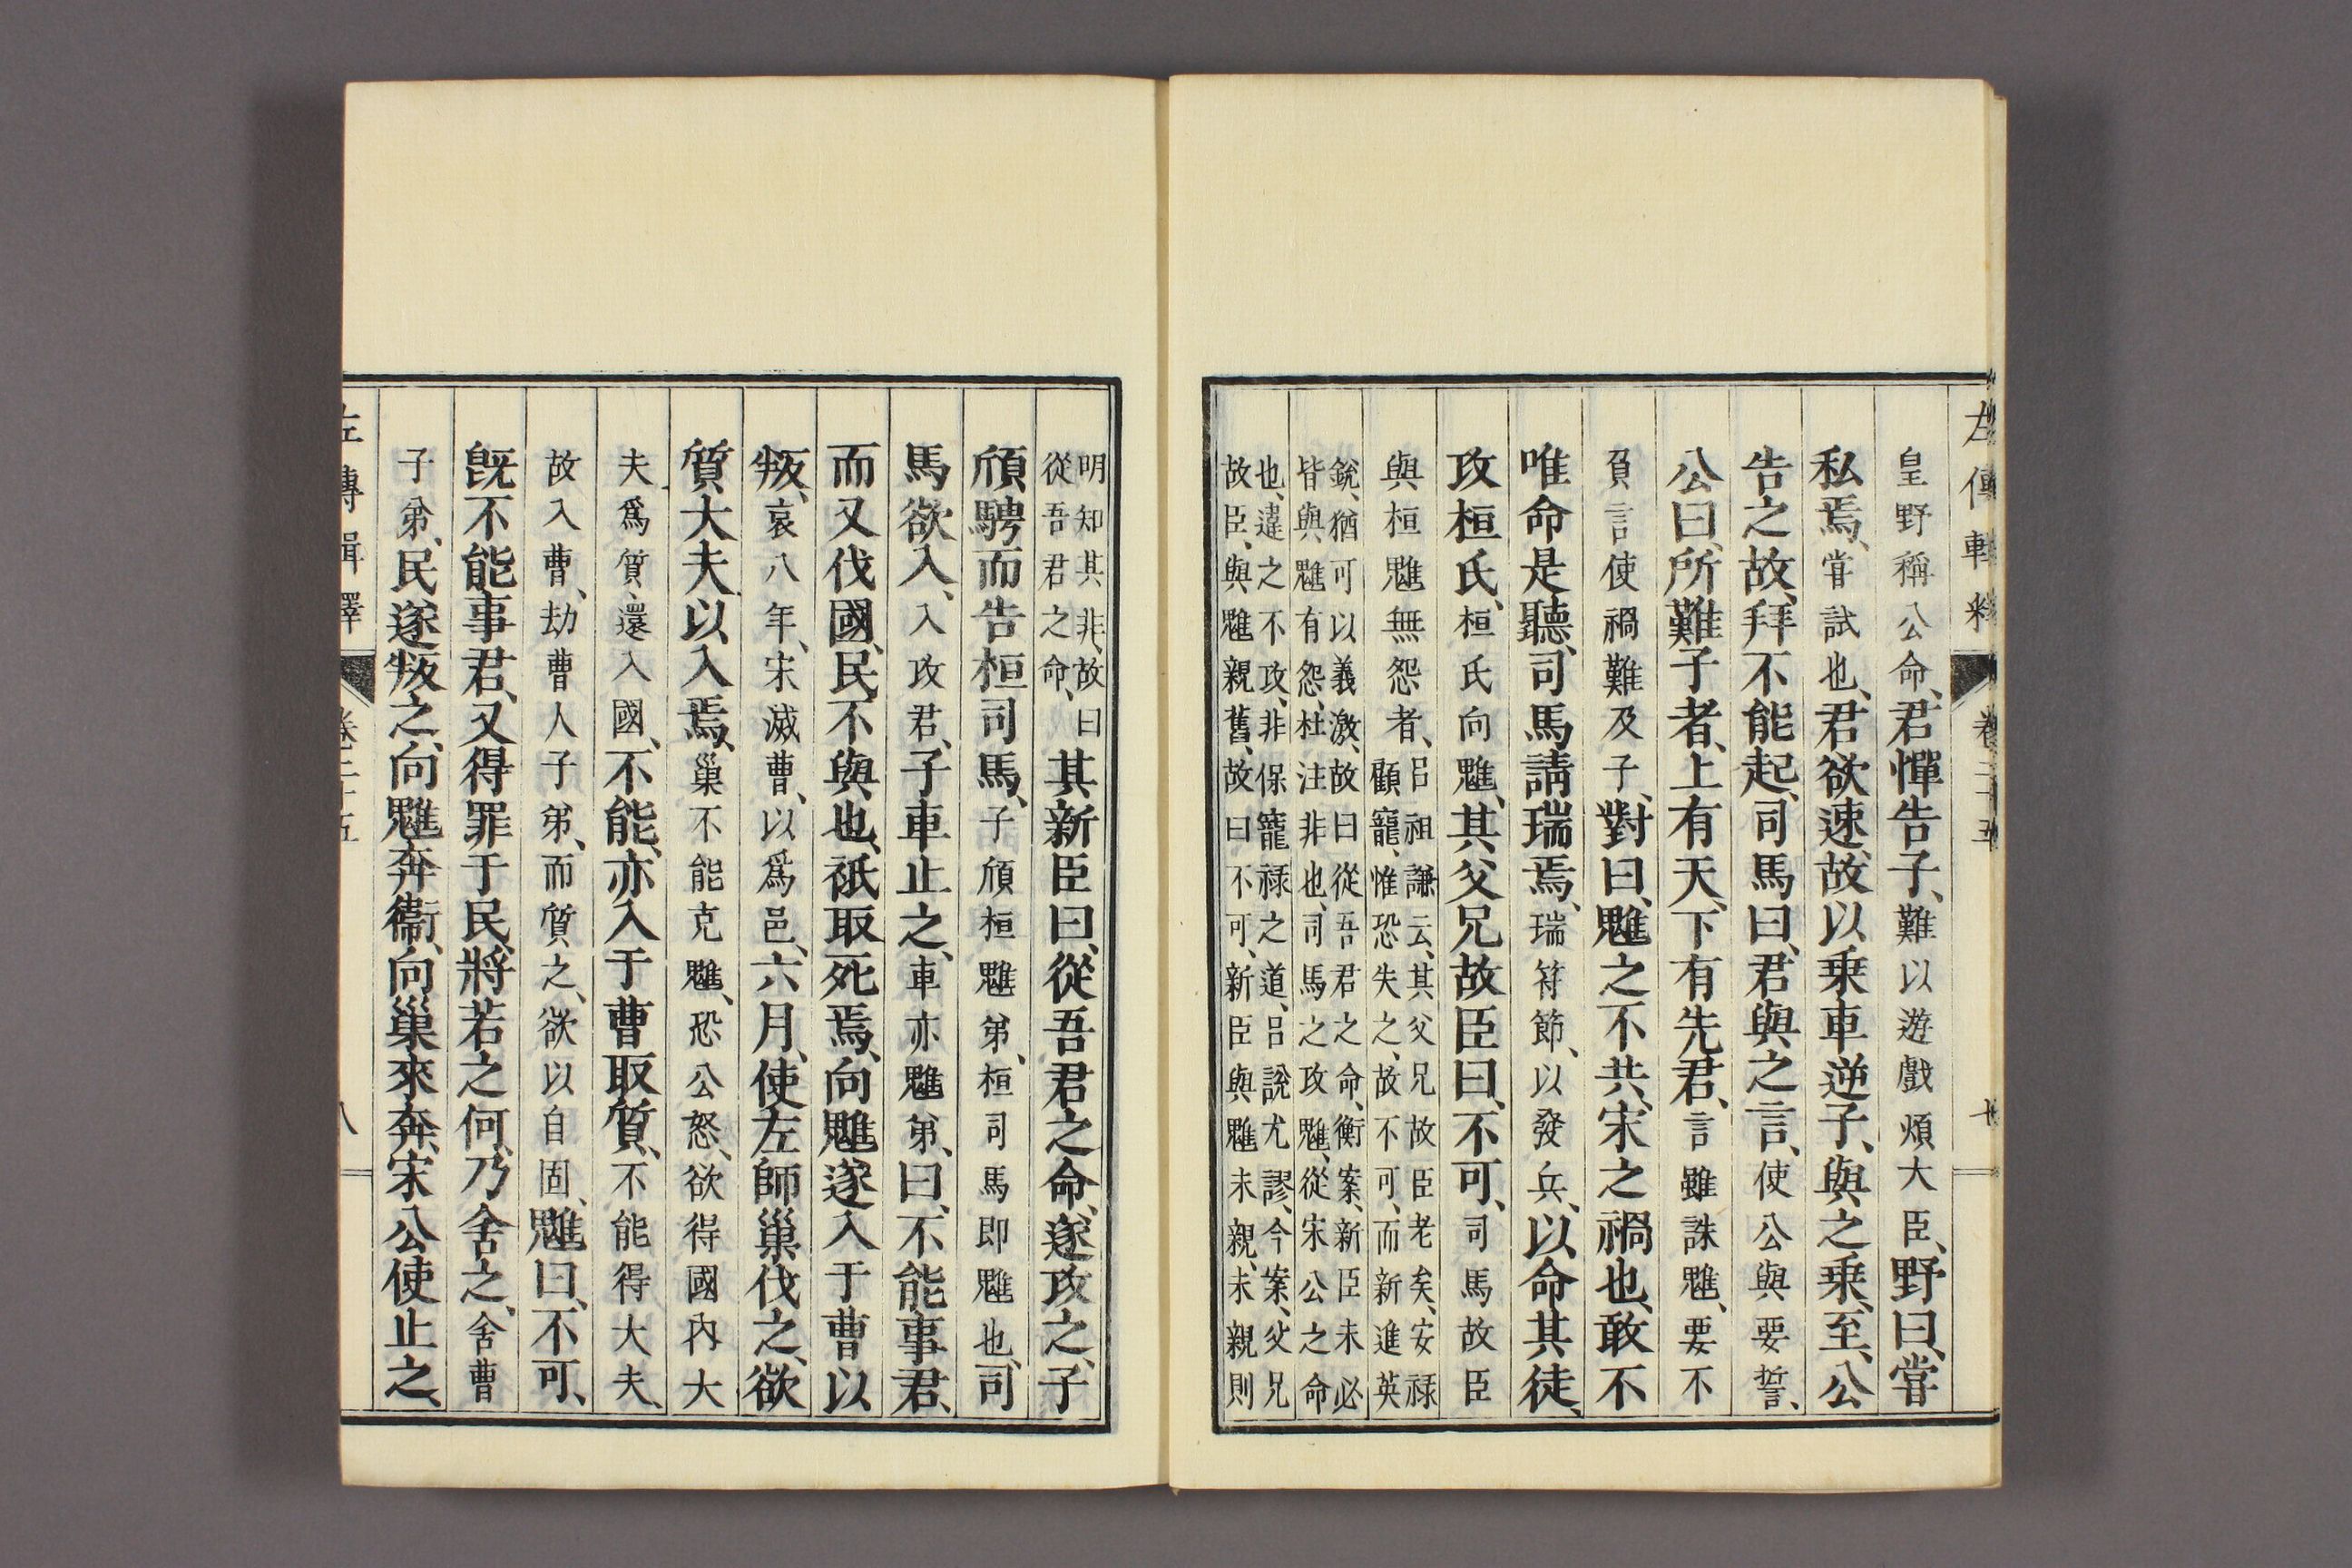 左傳輯釋 卷二十五
皇野稱公命、君憚告子、難以遊戲煩大臣、野曰、嘗
私焉、嘗試也、君欲速、故以乗車逆子、與之乗、至、公
告之故、拜不能起、司馬曰、君與之言、使公與要誓、
公曰、所難子者、上有天、下有先君、言雖誅魋、要不
負言使禍難及子、對曰、魋之不共、宋之禍也、敢不
唯命是聽、司馬請瑞焉、瑞符節、以發兵、以命其徒、
攻桓氏、桓氏向魋、其父兄故臣曰、不可、司馬故臣
與桓魋無怨者、呂祖謙云、其父兄故臣老矣、安祿
顧寵、惟恐失之、故不可、而新進英
銳、猶可以義激、故曰從吾君之命、衡案、新臣未必
皆與魋有怨、杜注非也、司馬之攻魋、從宋公之命
也、違之不攻、非保寵祿之道、呂說尤謬、今案、父兄
故臣、與魋親舊、故曰不可、新臣與魋未親、未親則
明知其非、故曰
從吾君之命、其新臣曰、從吾君之命、遂攻之、子
頎騁而告桓司馬、子頎桓魋弟、桓司馬即魋也、司
馬欲入、入攻君、子車止之、車亦魋弟、曰、不能事君、
而又伐國、民不與也、祇取死焉、向魋遂入于曹以
叛、哀八年、宋滅曹、以爲邑、六月、使左師巢伐之、欲
質大夫以入焉、巢不能克魋、恐公怒、欲得國內大
夫爲質、還入國、不能、亦入于曹取質、不能得大夫、
故入曹、劫曹人子弟、而質之、欲以自固、魋曰、不可、
旣不能事君、又得罪于民、將若之何、乃舍之、舍曹
子弟、民遂叛之、向魋奔衞、向巢來奔、宋公使止之、
左傳輯釋 卷二十五 八